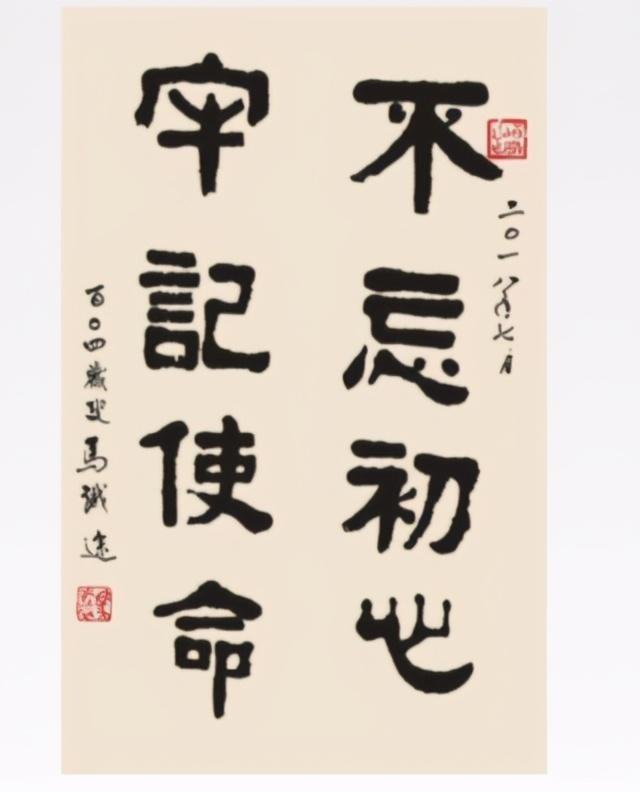 二〇一八年七月
不忘初心
牢記使命
百〇四歲叟馬識途